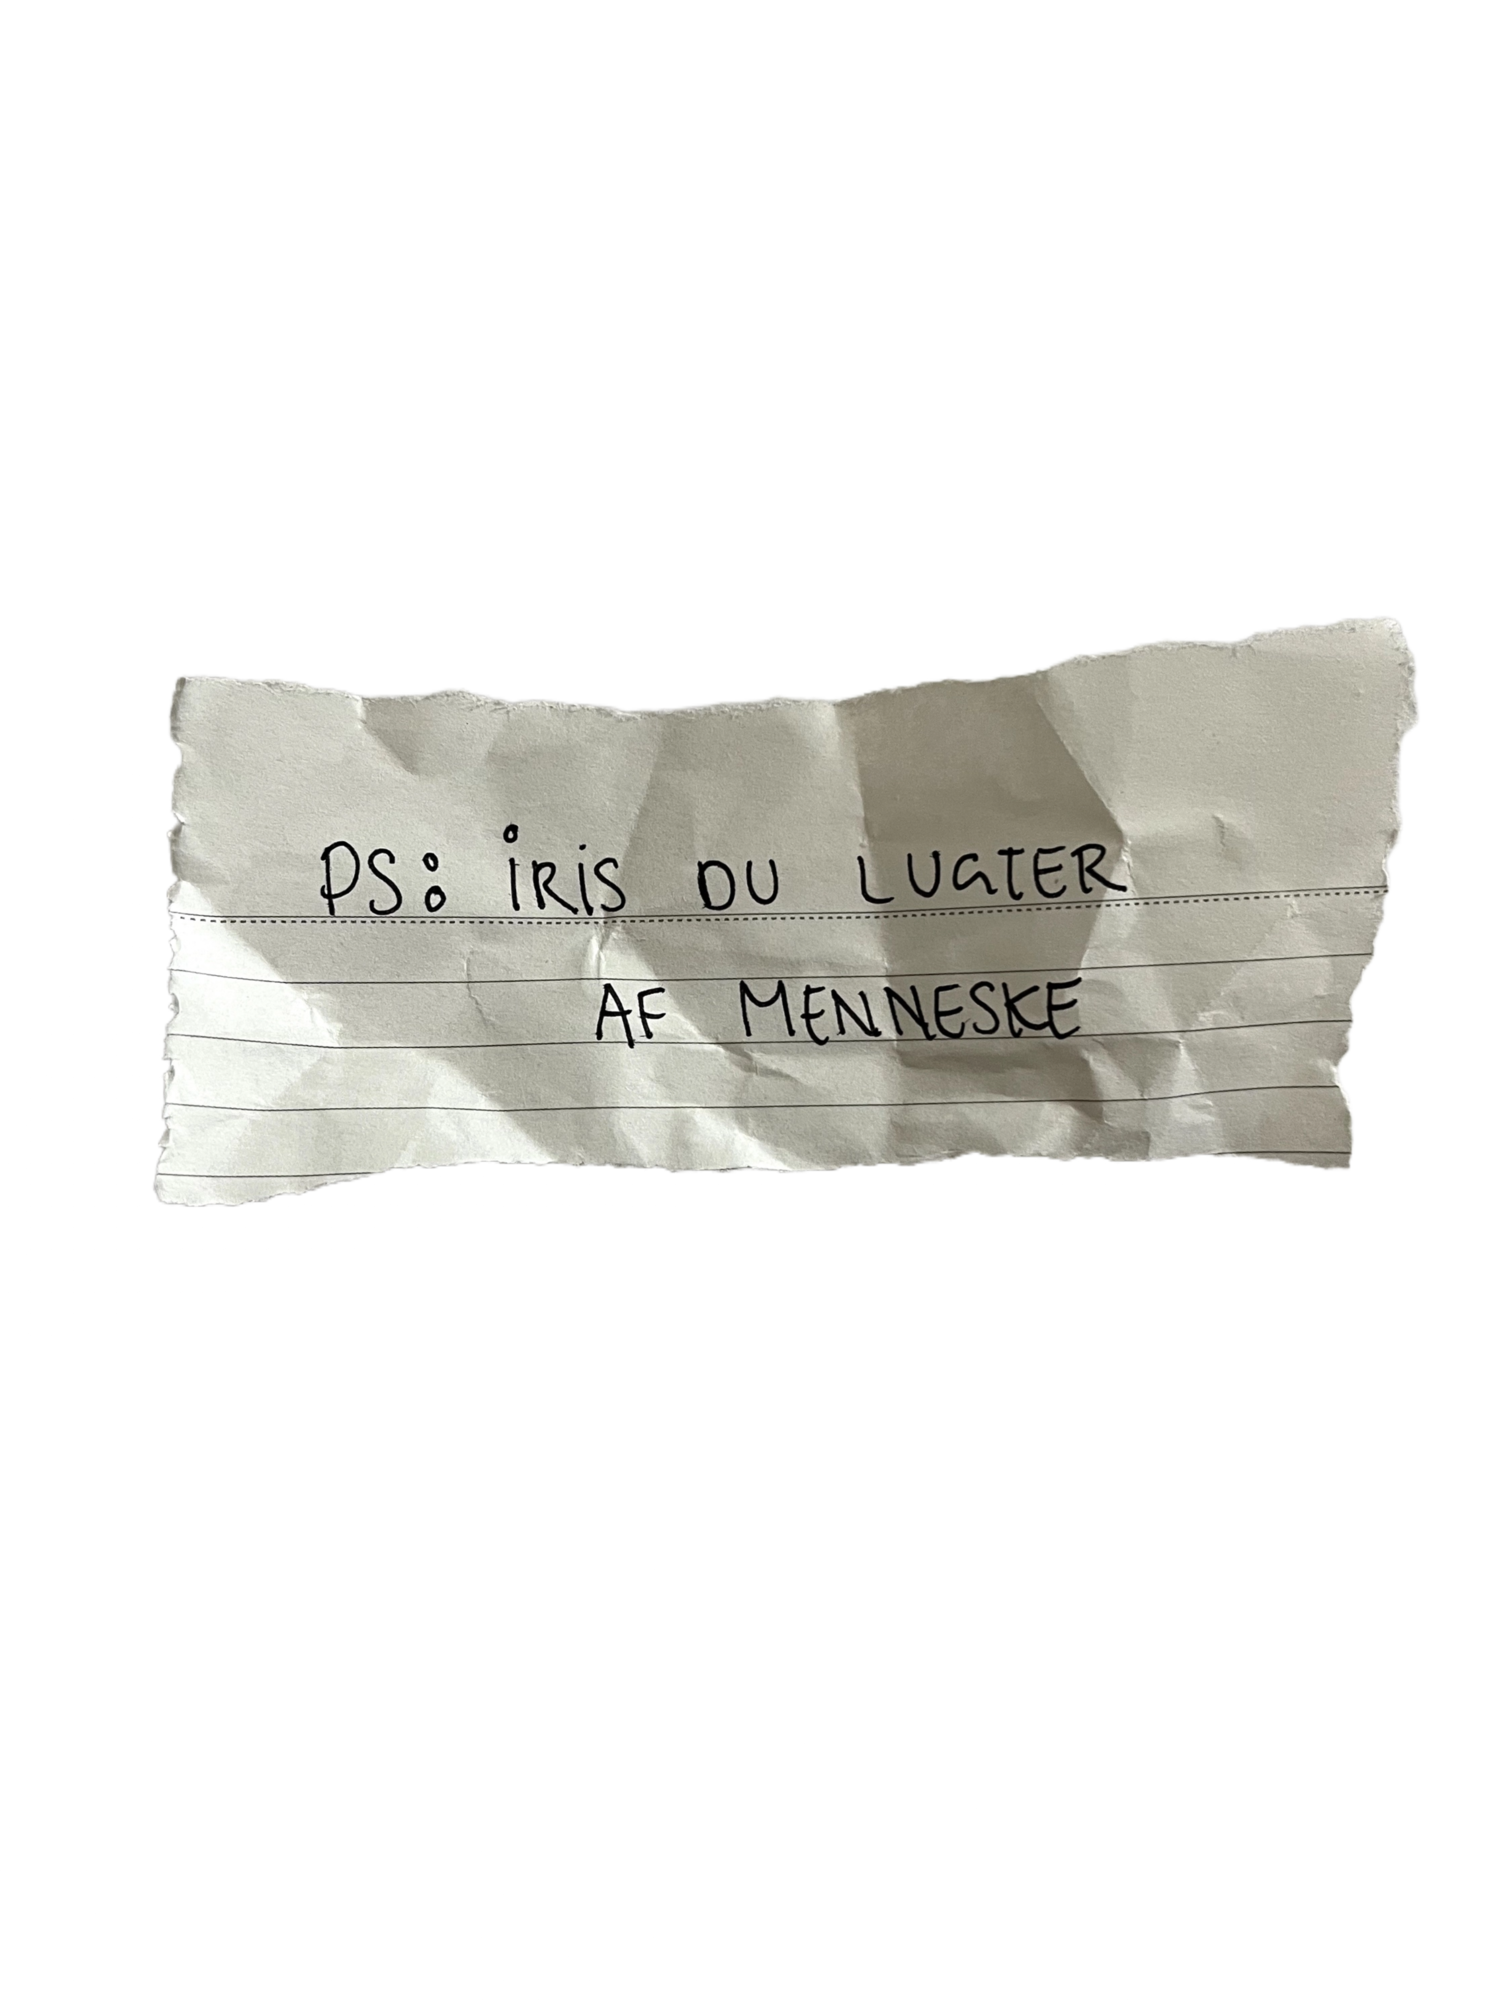 PS: iRiS DU LUGTER
AF MENNESKE